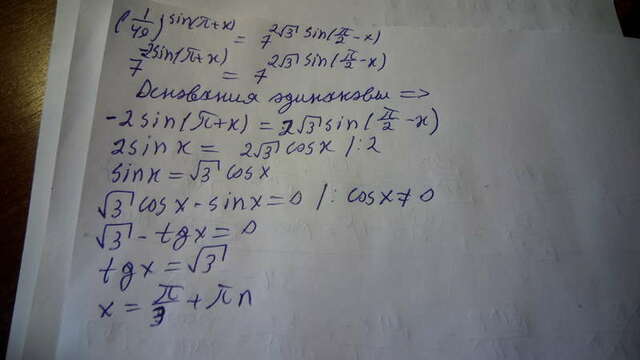 (1/49)^sin(π+x) = 7^2√3 sin(π/2-x)
7^-2sin(π+x) = 7^2√3 sin(π/2-x)
Основания одинаковы =>
-2sin(π+x) = 2√3 sin(π/2-x)
2sin x = 2√3 cosx /:2
sinx = √3 cosx
√3 cosx - sinx = 0 /: cosx ≠ 0
√3 - tgx = 0
tgx = √3
x = π/3 + πn